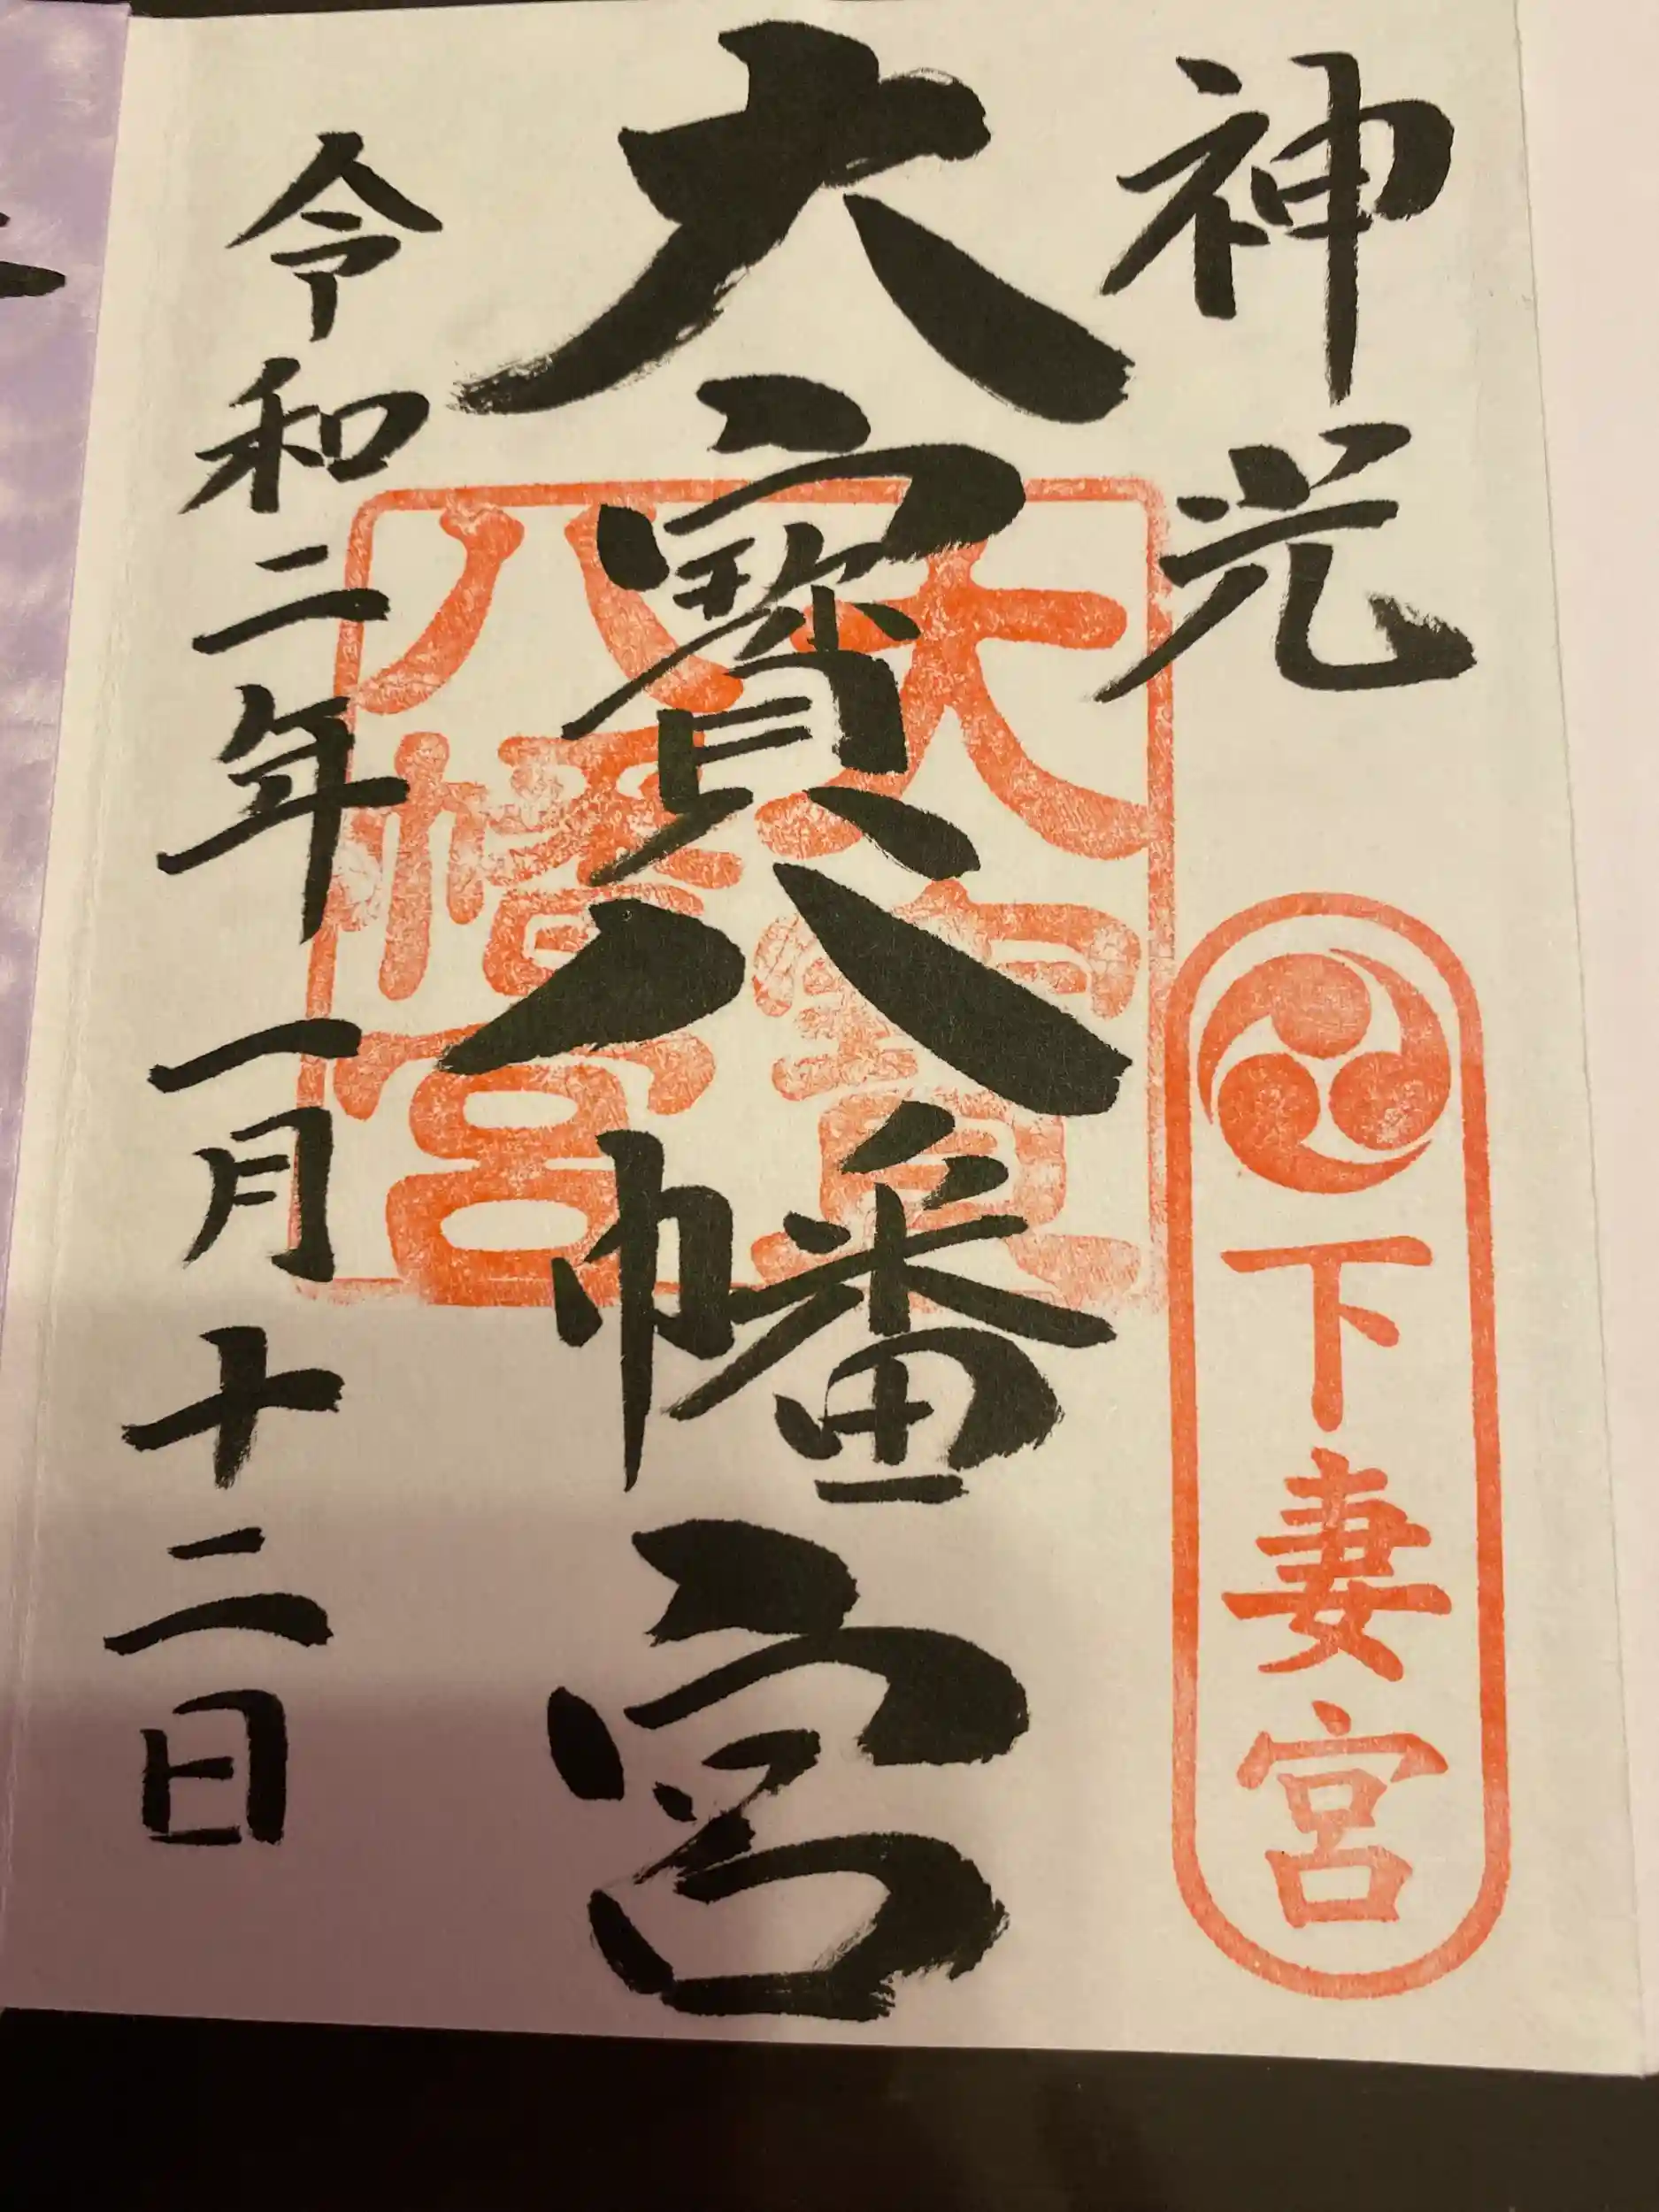 神光
下妻宮
大寳八幡宮
大寳
八幡宮
令和二年一月十二日